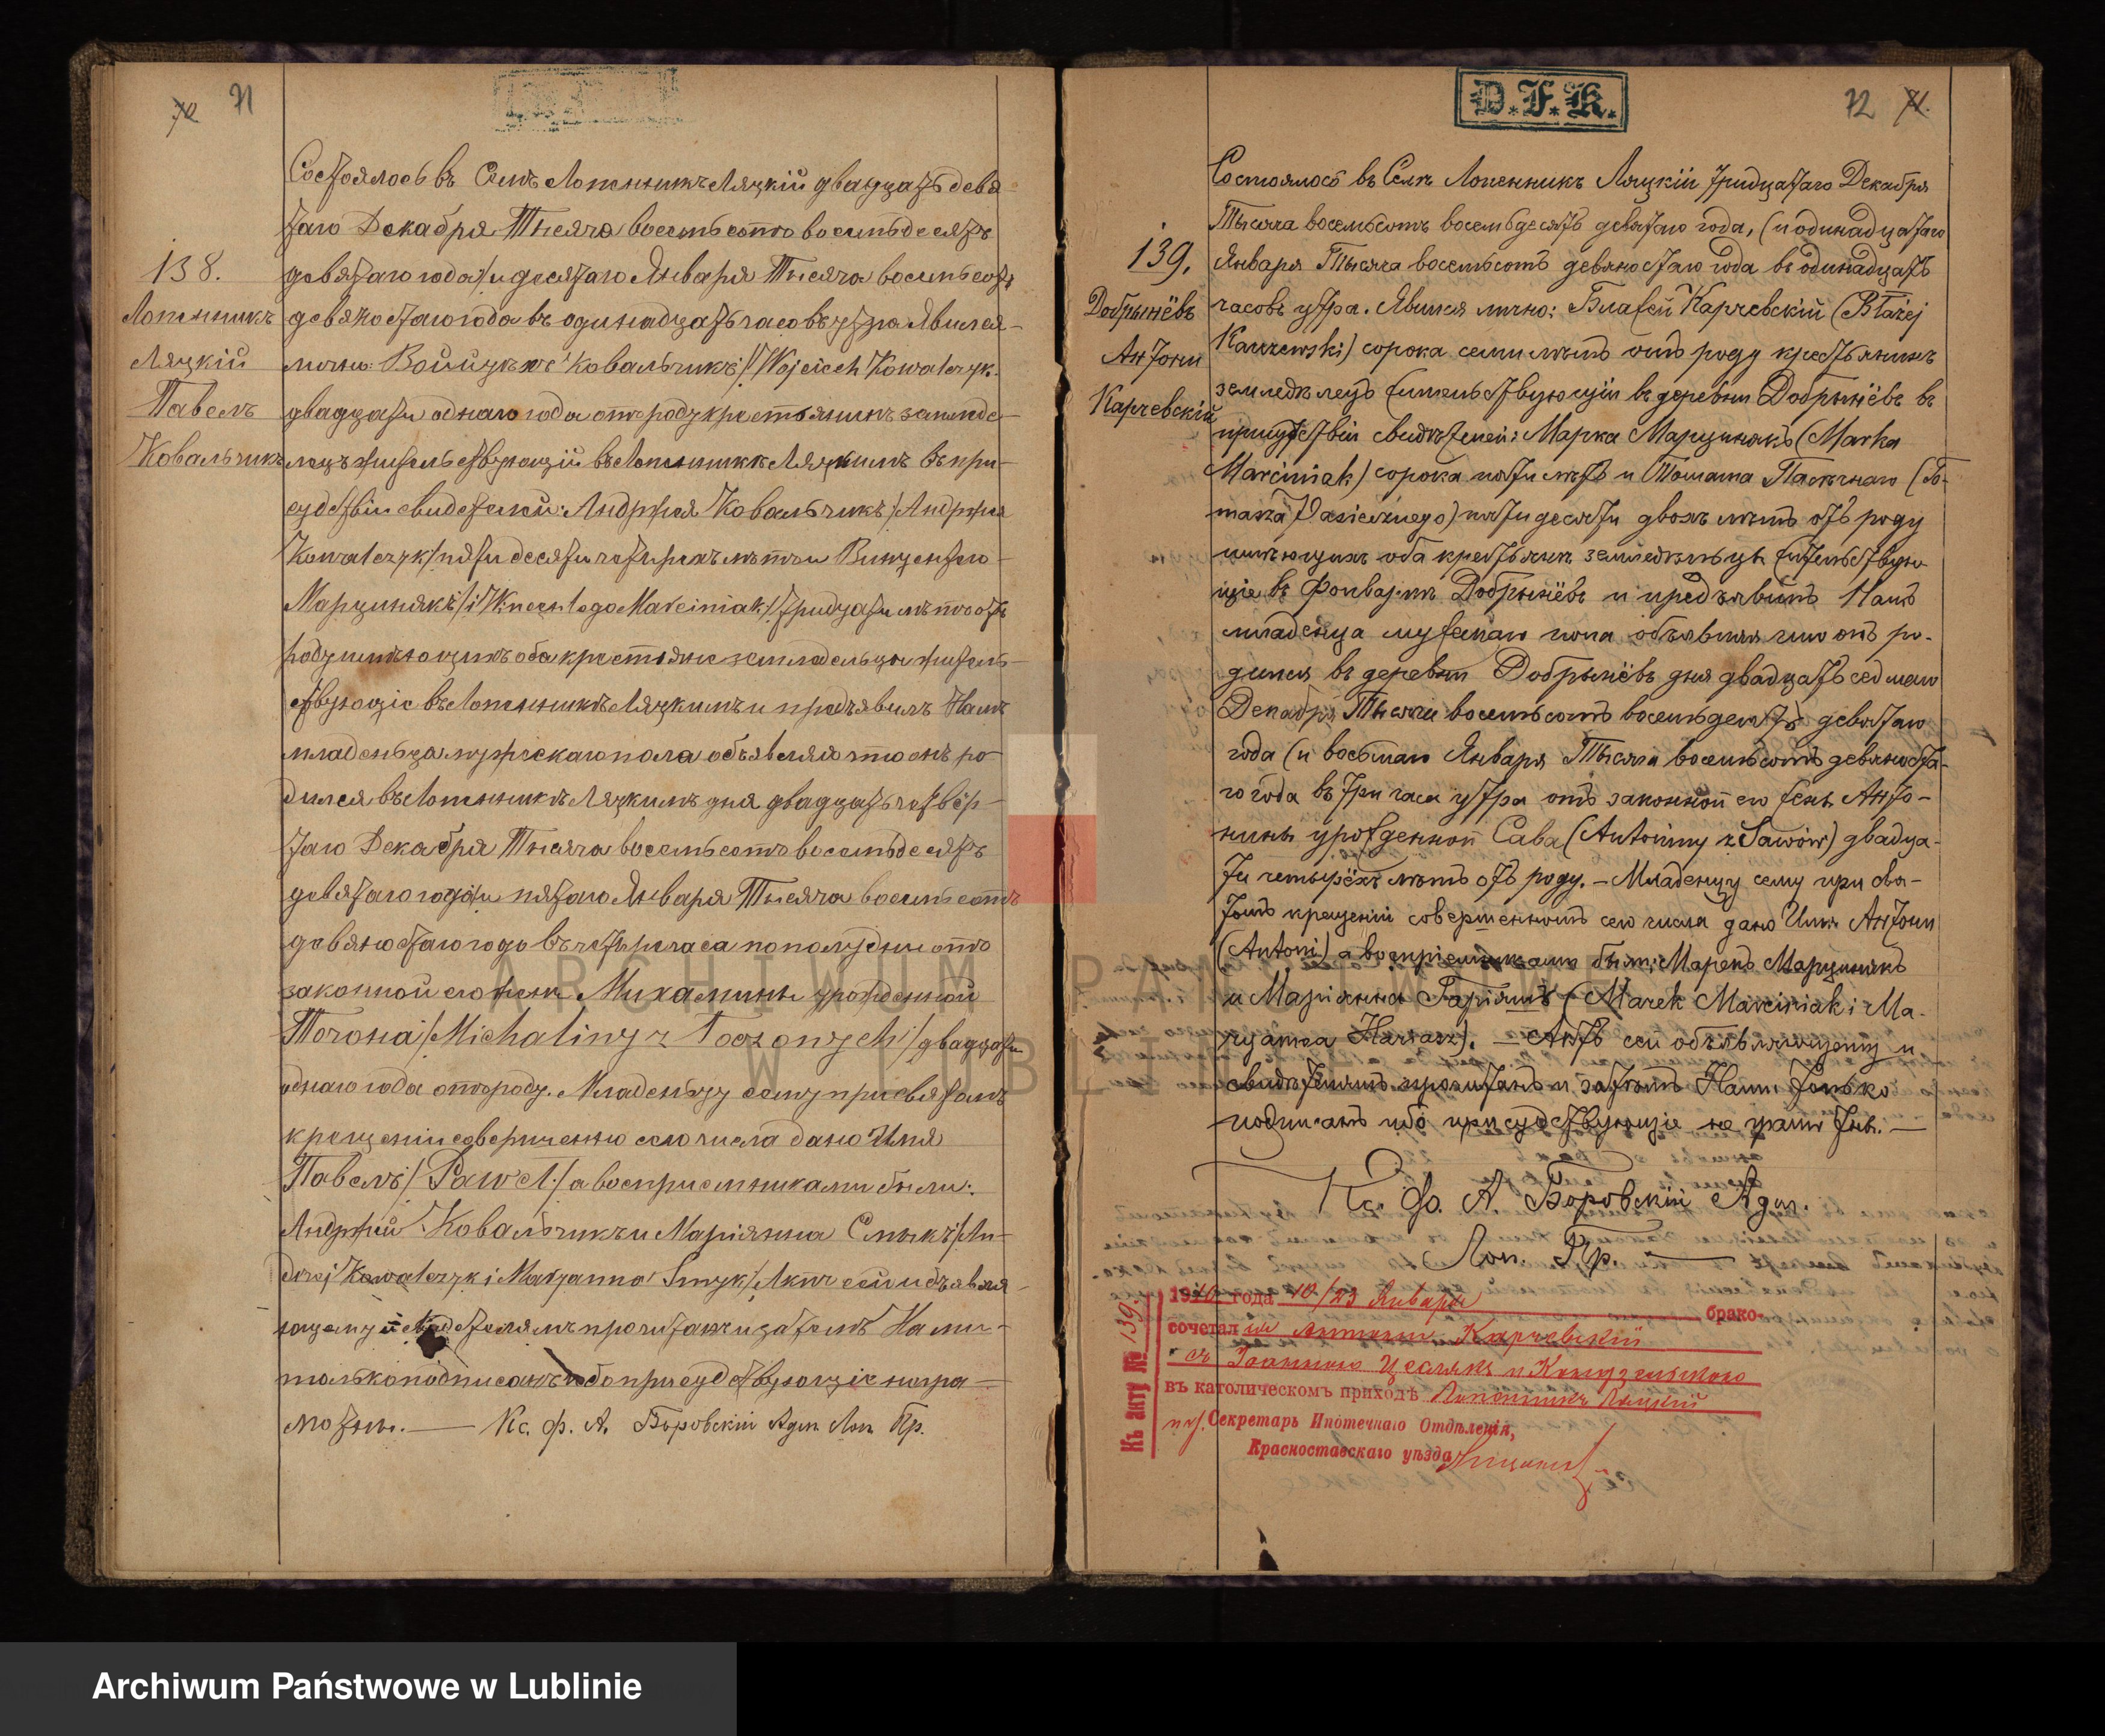 70 71
138.
Лопенникъ
Ляцкій
Павелъ
Ковальчикъ
Состоялось въ Селѣ Лопенникъ Ляцкій двадцать девя-
таго Декабря Тысяча восемьсотъ восемьдесятъ
девятаго года /и десятаго Января Тысяча восемьсотъ
девяностаго года въ одинадцать часовъ утра Явился
лично: Войцѣхъ Ковальчикъ /:Wojciech Kowalczyk:
двадцати однаго года отъ роду крестьянинъ землядѣ-
лецъ жительствующій въ Лопенникѣ Ляцкимъ въ при-
судствіи свидетелей: Андржея Ковальчикъ /Андржея
Kowalczyk/ пятидесяти четырехъ лѣтъ и Винцентего
Марциникъ /i Wincentego Marciniak/ тридцати лѣтъ отъ
роду имѣющихъ оба крестьяне земладельцы житель-
ствующіе въ Лопенникѣ Ляцкимъ и предъявилъ Намъ
младеньца мужескаго пола объявляя что онъ ро-
дился въ Лопенникѣ Ляцкимъ дня двадцать четвёр-
таго Декабря Тысяча восемьсотъ восемьдесятъ
девятаго года /и пятаго Января Тысяча восемьсотъ
девяностаго года въ четыри часа пополудни отъ
законной его жены Михалины урожденной
Точона /Michaliny z Toczonych/ двадцати
однаго года отъ роду. Младеньцу сему при святомъ
крещеніи совершенно сего числа дано Имя
Павелъ /Paweł:/ а восприемниками были:
Андржей Ковальчикъ и Маріянна Смыкъ /An-
drzej Kowalczyk i Maryanna Smyk/ Актъ сей объявля-
ющему и свидетелямъ прочитанъ и затемъ Нами
только подписанъ ибо присудствующіе негра-
мотны. — Кс. ф. А. Боровскій Адм. Лоп. Пр.
D.F.K.
72 71.
139.
Добрынёвъ
Антони
Карчевскій
Состоялось въ Селѣ Лопенникъ Ляцкій тридцатаго Декабря
Тысяча восемьсотъ восемьдесятъ девятаго года, (и одинадцатаго
Января Тысяча восемьсотъ девяностаго года въ одинадцать
часовъ утра. Явился лично: Блажей Карчевскій (Błażej
Karczewski) сорока семи лѣтъ отъ роду крестьянинъ
земледѣлецъ жительствующій въ деревни Добрынёвъ въ
присутствіи свидѣтелей: Марка Марциникъ (Marka
Marciniak) сорока пяти лѣтъ и Томаша Пасѣчнаго (To-
masza Pasiecznego) пятидесяти двохъ лѣтъ отъ роду
имѣющихъ оба крестьяне земледѣльцы жительствую-
щіе въ Фольваркѣ Добрынёвъ и предъявилъ Намъ
младенца мужескаго пола объявляя что онъ ро-
дился въ деревни Добрынёвъ дня двадцать седмаго
Декабря Тысяча восемьсотъ восемьдесятъ девятаго
года (и восьмаго Января Тысяча восемьсотъ девяноста-
го года въ три часа утра отъ законной его жены Анто-
нины урожденной Сава (Antoniny z Sawów) двадца-
ти четырёхъ лѣтъ отъ роду. — Младенцу сему при свя-
томъ крещеніи совершенномъ сего числа дано Имя Антони
(Antoni) а воспріемниками были: Марекъ Марциникъ
и Маріянна Гаріяшъ (Marek Marciniak i Ma-
ryanna Harasz). — Актъ сей объявляющему и
свидѣтелямъ прочитанъ и затѣмъ Нами только
подписанъ ибо присудствующіе не грамотны. —
Кс. Ф. А. Боровскій Адм.
Лоп. Пр. —
Къ акту № 139.
1910 года 10/23 Января брако-
сочетался Антони Карчевскій
съ Іоанною
въ католическомъ приходѣ Лопенникъ Ляцкій
Секретарь Ипотечнаго Отдѣленія,
Красноставскаго уѣзда
ARCHIWUM PAŃSTWOWE
W LUBLINIE
Archiwum Państwowe w Lublinie